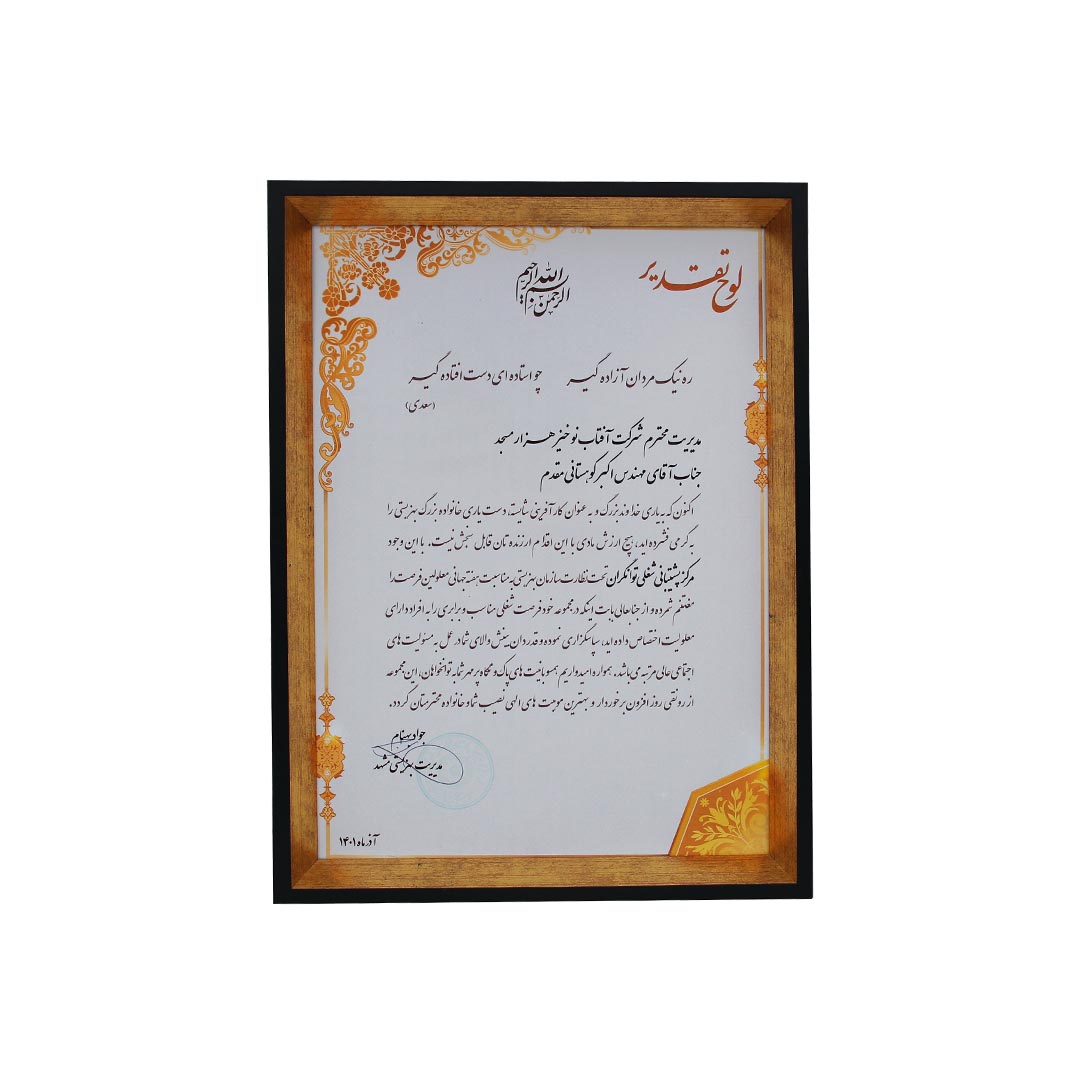 لوح تقدیر
بسم الله الرحمن الرحیم
ره نیک مردان آزاده گیر چو استاده ای دست افتاده گیر
(سعدی)
مدیریت محترم شرکت آفتاب نوخیز هزار مسجد
جناب آقای مهندس اکبر کوهستانی مقدم
اکنون که به یاری خداوند بزرگ و به عنوان کارآفرینی شایسته، دست یاری خانواده بزرگ بهزیستی را
به گرمی فشرده اید، هیچ ارزش مادی با این اقدام ارزنده تان قابل سنجش نیست. با این وجود
مرکز پشتیبانی شغلی توانگران تحت نظارت سازمان بهزیستی به مناسبت هفته جهانی معلولین فرصت را
مغتنم شمرده و از جنابعالی بابت اینکه در مجموعه خود فرصت شغلی مناسب و برابری را به افراد دارای
معلولیت اختصاص داده اید، سپاسگزاری نموده و قدردان بینش والای شما در عمل به مسئولیت های
اجتماعی عالی مرتبه می باشد. همواره امیدواریم همسو با نیت های پاک و نگاه پر مهر شما به توانخواهان، این مجموعه
از رونقی روز افزون برخوردار و بهترین موهبت های الهی نصیب شما و خانواده محترمتان گردد.
جواد بهنام
مدیریت بهزیستی مشهد
آذر ماه ۱۴۰۱